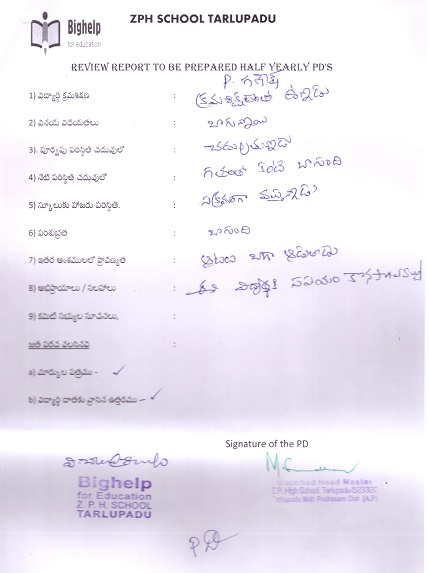 Bighelp
for education
ZPH SCHOOL TARLUPADU
REVIEW REPORT TO BE PREPARED HALF YEARLY PD'S
P. గణేష్
1) విద్యార్థి క్రమశిక్షణ : క్రమశిక్షణతో ఉన్నాడు
2) వినయ విధేయతలు : బాగున్నాయి
3). పూర్వపు పరిస్థితి చదువులో : చదువుతున్నాడు
4) నేటి పరిస్థితి చదువులో : గతంలో కంటే బాగుంది
5) స్కూలుకు హాజరు పరిస్థితి. : సక్రమంగా వస్తున్నాడు
6) పరిశుభ్రత : బాగుంది
7) ఇతర అంశములలో ప్రావిణ్యత : ఆటలు బాగా ఆడుతాడు
8) అభిప్రాయాలు / సలహాలు : ఈ విద్యార్థికి సహాయం
9) కమిటీ సభ్యుల సూచనలు, :
జత పరచ వలసినవి :
a) మార్కుల పత్రము - ✓
b) విద్యార్థి దాతకు వ్రాసిన ఉత్తరము - ✓
Signature of the PD
Bighelp
for Education
Z. P. H. SCHOOL
TARLUPADU
Gazetted Head Master
Z.P. High School, Tarlupadu
Tarlupadu Mdt; Prakasam Dist (A.P.)
PD